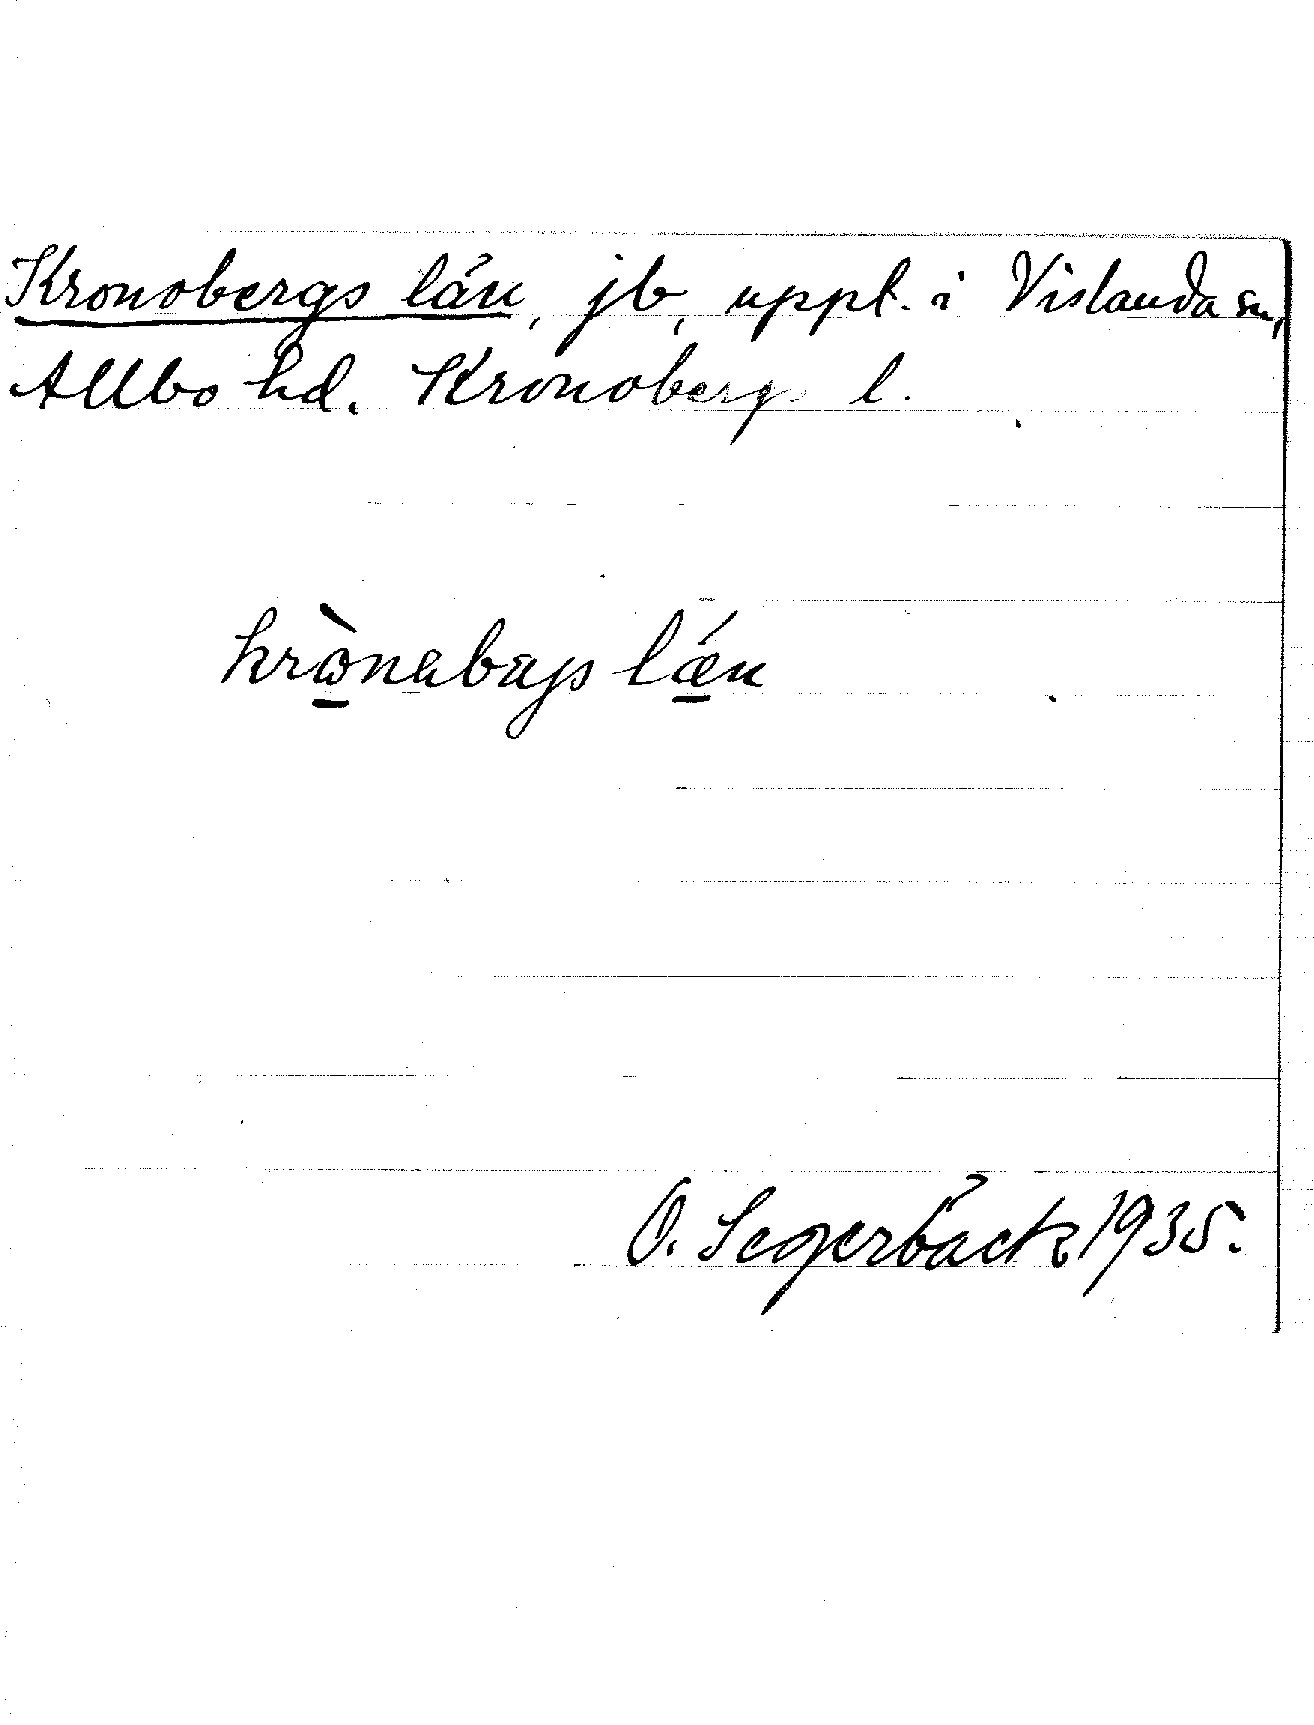 Kronobergs län, jb, uppt. i Vislanda sn,
Allbo hd. Kronobergs l.
krꞷ̀nabæjs lǽn
O. Segerbäck 1935.